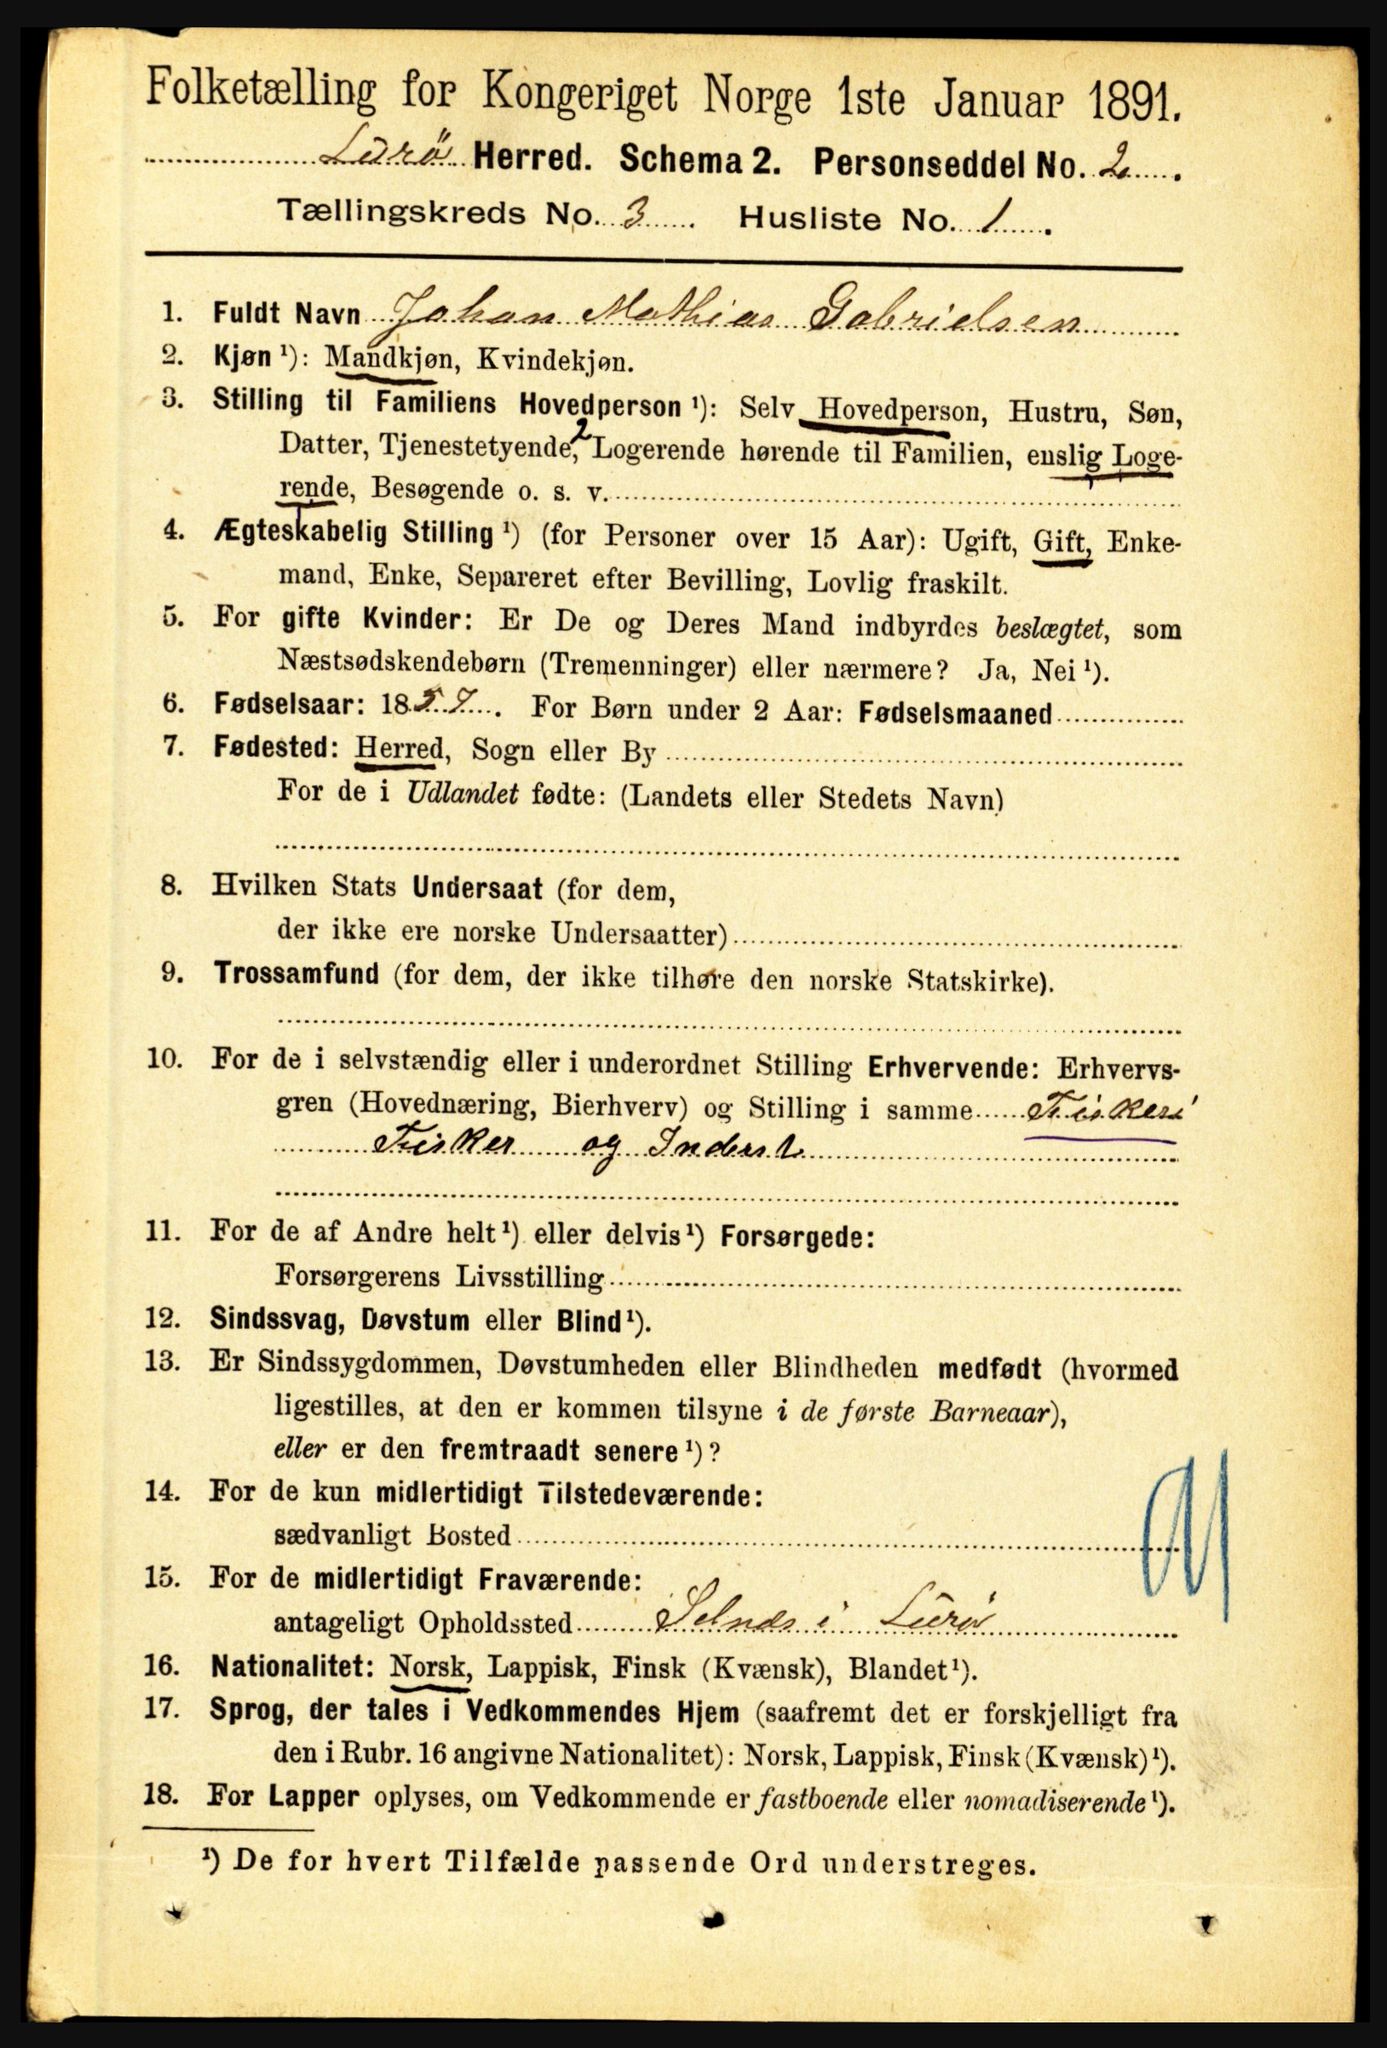 Folketælling for Kongeriget Norge 1ste Januar 1891.
Lurø Herred. Schema 2. Personseddel No. 2.
Tællingskreds No. 3. Husliste No. 1.
1. Fuldt Navn Johan Mathias Gabrielsen
2. Kjøn ¹): Mandkjøn, Kvindekjøn.
3. Stilling til Familiens Hovedperson ¹): Selv Hovedperson, Hustru, Søn,
Datter, Tjenestetyende, 2 Logerende hørende til Familien, enslig Loge-
rende, Besøgende o. s. v.
4. Ægteskabelig Stilling ¹) (for Personer over 15 Aar): Ugift, Gift, Enke-
mand, Enke, Separeret efter Bevilling, Lovlig fraskilt.
5. For gifte Kvinder: Er De og Deres Mand indbyrdes beslægtet, som
Næstsødskendebørn (Tremenninger) eller nærmere? Ja, Nei ¹).
6. Fødselsaar: 1857. For Børn under 2 Aar: Fødselsmaaned
7. Fødested: Herred, Sogn eller By
For de i Udlandet fødte: (Landets eller Stedets Navn)
8. Hvilken Stats Undersaat (for dem,
der ikke ere norske Undersaatter)
9. Trossamfund (for dem, der ikke tilhøre den norske Statskirke).
10. For de i selvstændig eller i underordnet Stilling Erhvervende: Erhvervs-
gren (Hovednæring, Bierhverv) og Stilling i samme Fiskeri
Fisker og Inderst
11. For de af Andre helt ¹) eller delvis ¹) Forsørgede:
Forsørgerens Livsstilling
12. Sindssvag, Døvstum eller Blind ¹).
13. Er Sindssygdommen, Døvstumheden eller Blindheden medfødt (hvormed
ligestilles, at den er kommen tilsyne i de første Barneaar),
eller er den fremtraadt senere ¹)?
14. For de kun midlertidigt Tilstedeværende:
sædvanligt Bosted
15. For de midlertidigt Fraværende:
antageligt Opholdssted i Lurø
16. Nationalitet: Norsk, Lappisk, Finsk (Kvænsk), Blandet ¹).
17. Sprog, der tales i Vedkommendes Hjem (saafremt det er forskjelligt fra
den i Rubr. 16 angivne Nationalitet): Norsk, Lappisk, Finsk (Kvænsk) ¹).
18. For Lapper oplyses, om Vedkommende er fastboende eller nomadiserende ¹).
¹) De for hvert Tilfælde passende Ord understreges.